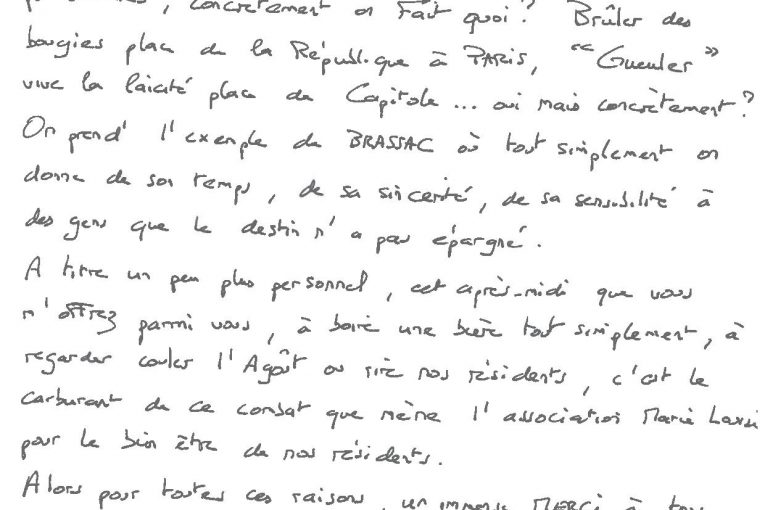 , concrètement on Fait quoi ? Brûler des
bougies place de la République à PARIS, "Gueuler"
vive la laïcité place du Capitole... oui mais concrètement ?
On prend l'exemple de BRASSAC où tout simplement on
donne de son temps, de sa sincérité, de sa sensibilité à
des gens que le destin n'a pas épargné.
A titre un peu plus personnel, cet après-midi que vous
m'offrez parmi vous, à boire une bière tout simplement, à
regarder couler l'Agoût ou rire nos résidents, c'est le
carburant de ce combat que mène l'association Marie Louise
pour le bien être de nos résidents.
Alors pour toutes ces raisons, un immense MERCI à